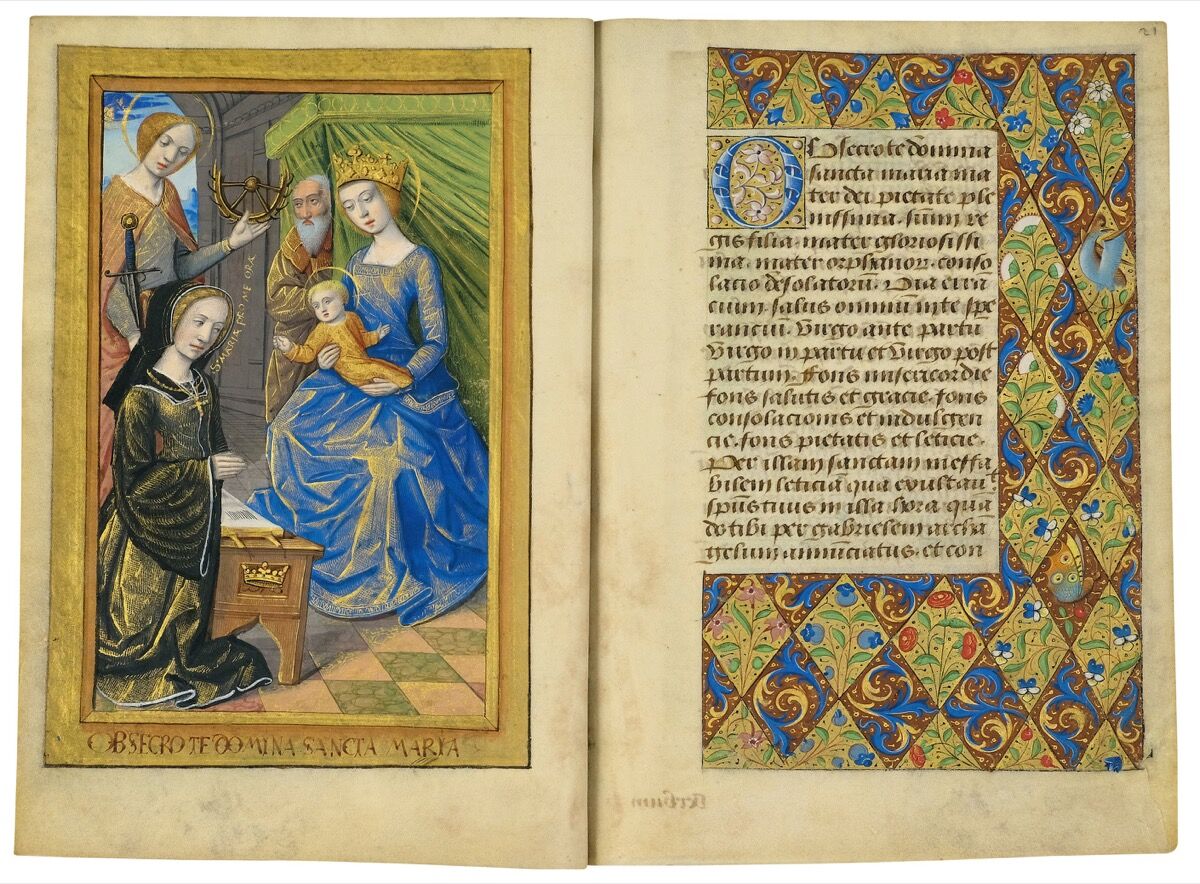 S. MARIA PRO ME ORA
OBSECRO TE DOMINA SANCTA MARIA
21
Obsecro te domina
sancta maria ma
ter dei pietate ple
nissima. sum re
gis filia. mater gloriosissi
ma. mater orphanor. conso
lacio desolatorū. Via erra
cium. salus omniū in te spe
rancium. Virgo ante partū
Virgo in partu et Virgo post
partum. Fons misericordie
fons salutis et gracie. fons
consolacionis et indulgen
cie. fons pietatis et leticie.
Per illam sanctam ineffa
bilem leticiā qua exultauit
sp̄us tuus in illa hora quā
do tibi per gabrielem archa
gelum annunciatus. et con